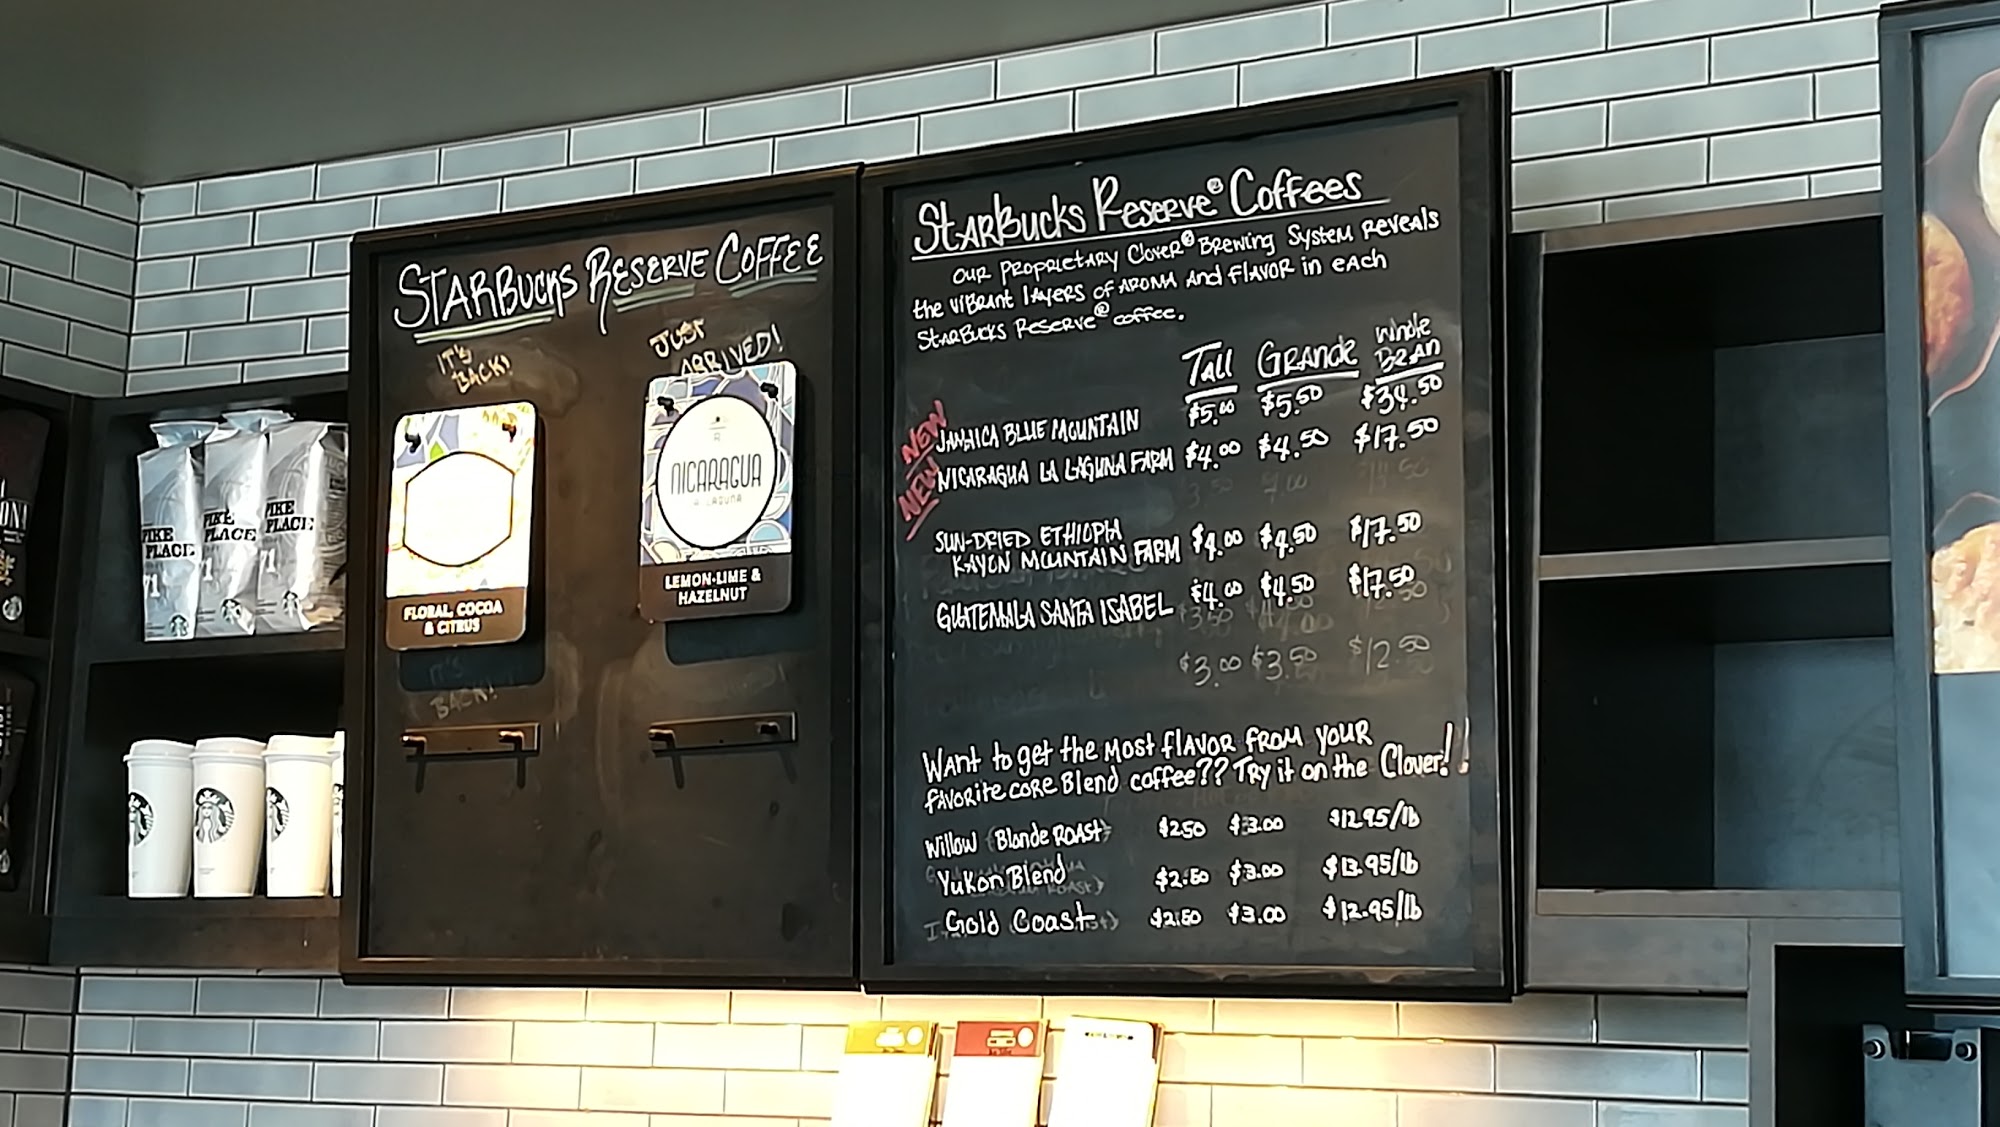 STARBUCKS RESERVE COFFEE
IT'S
BACK!
JUST
ARRIVED!
NICARAGUA
LA LAGUNA
FLORAL, COCOA
& CITRUS
LEMON-LIME &
HAZELNUT
IT'S
BACK!
PIKE
PLACE
PIKE
PLACE
PIKE
PLACE
STARBUCKS RESERVE® COFFEES
OUR PROPRIETARY CLOVER® BREWING SYSTEM REVEALS
the VIBRANT LAYERS OF AROMA AND FLAVOR in EACH
STARBUCKS RESERVE® coffee.
TALL GRANDE Whole
BEAN
NEW JAMAICA BLUE MOUNTAIN $5.00 $5.50 $34.50
NEW NICARAGUA LA LAGUNA FARM $4.00 $4.50 $17.50
SUN-DRIED ETHIOPIA
KAYON MOUNTAIN FARM $4.00 $4.50 $17.50
GUATEMALA SANTA ISABEL $4.00 $4.50 $17.50
$3.00 $3.50 $12.50
WANT to get the MOST flAVOR FROM YOUR
fAVORITE CORE Blend coffee?? TRY it on the Clover!!
Willow (Blonde ROAST) $2.50 $3.00 $12.95/lb
Yukon Blend $2.50 $3.00 $13.95/lb
Gold Coast $2.50 $3.00 $12.95/lb